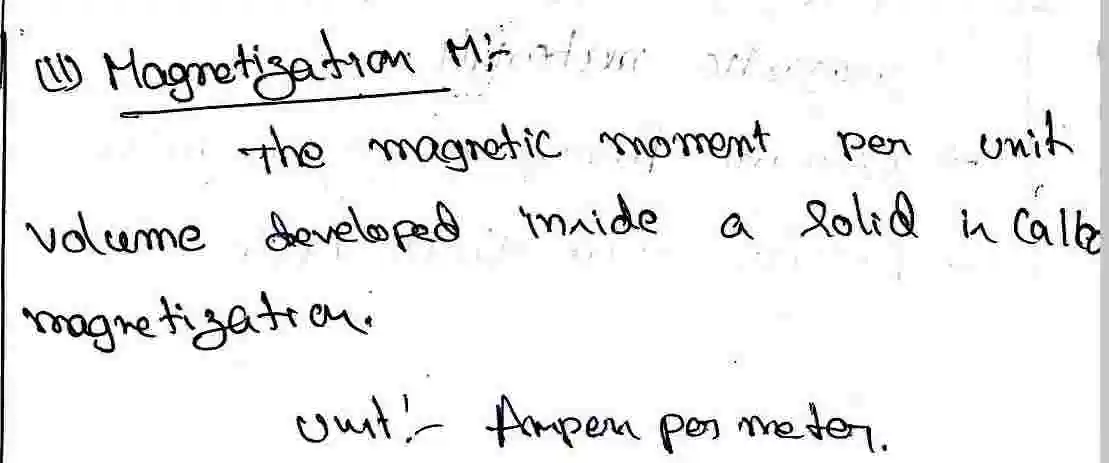 (11) Magnetization M:-
The magnetic moment per unit
volume developed inside a solid is Calle
magnetization.
Unit:- Amper per meter.